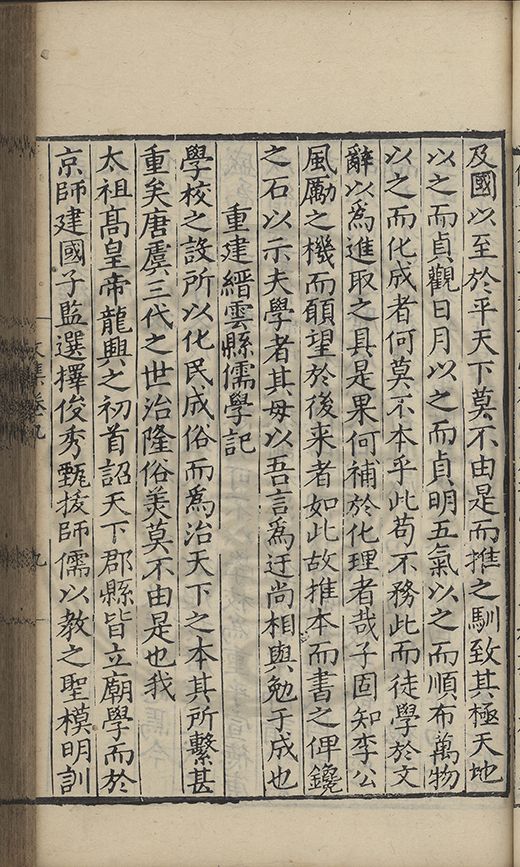 及國以至於平天下莫不由是而推之馴致其極天地
以之而貞觀日月以之而貞明五氣以之而順布萬物
以之而化成者何莫不本乎此苟不務此而徒學於文
辭以爲進取之具是果何補於化理者哉子固知李公
風勵之機而願望於後来者如此故推本而書之俾鑱
之石以示夫學者其毋以吾言爲迂尚相與勉于成也
重建縉雲縣儒學記
學校之設所以化民成俗而爲治天下之本其所繫甚
重矣唐虞三代之世治隆俗美莫不由是也我
太祖高皇帝龍興之初首詔天下郡縣皆立廟學而於
京師建國子監選擇俊秀甄拔師儒以教之聖模明訓